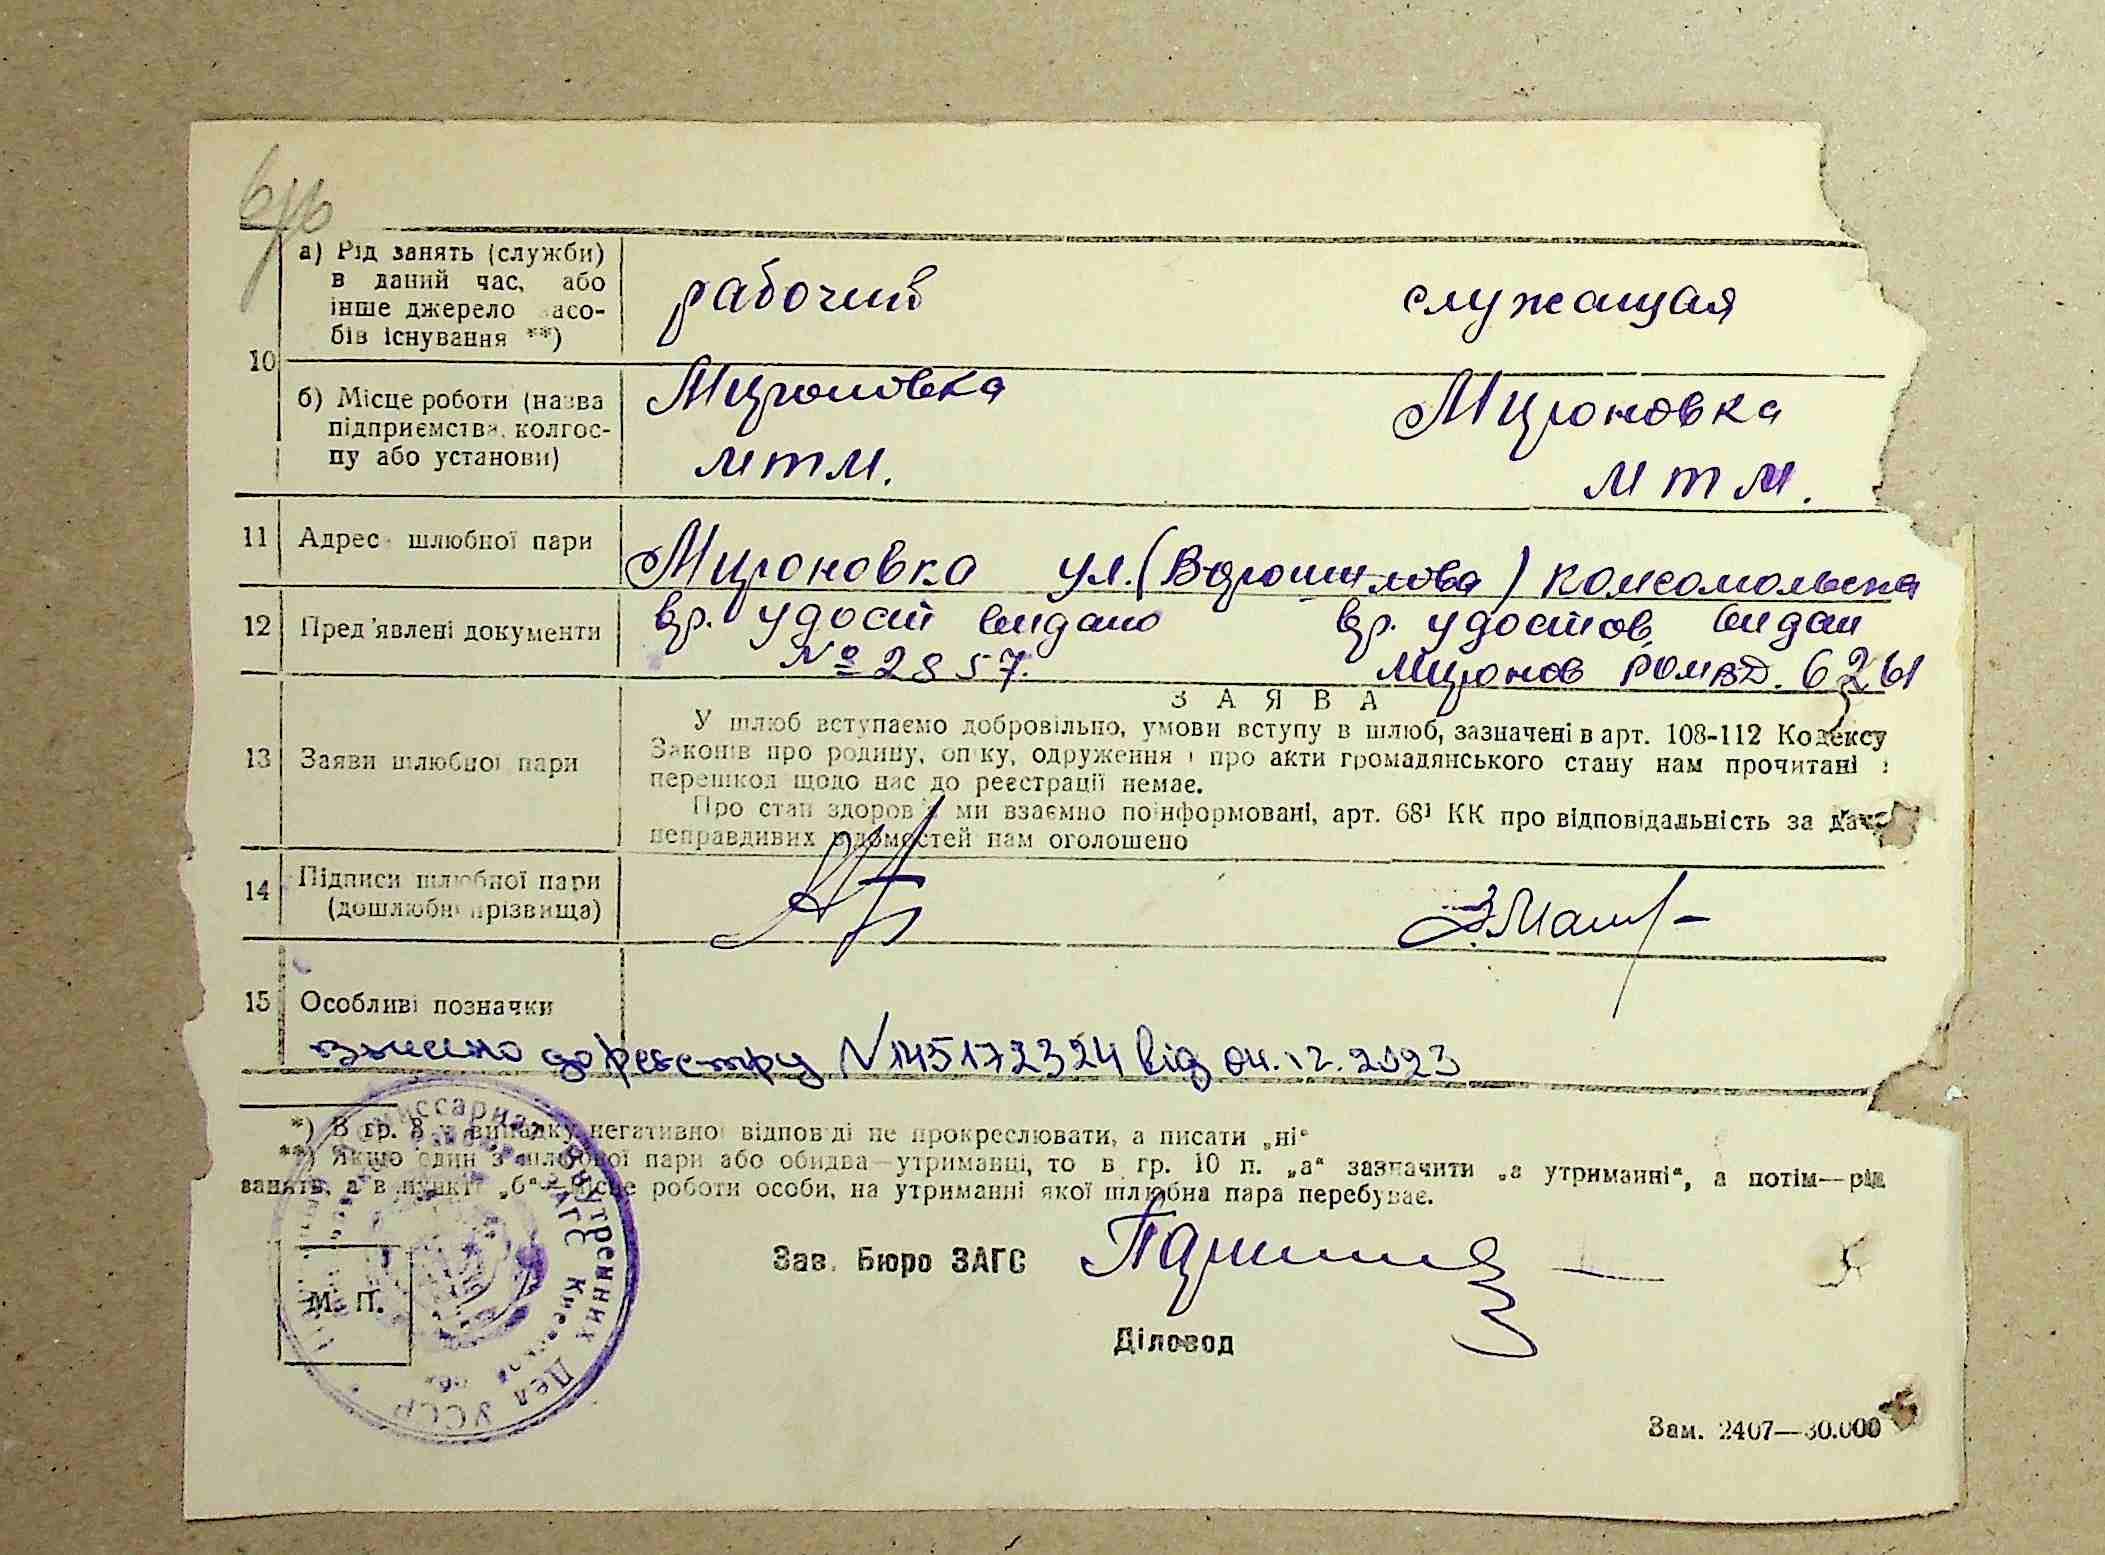 а) Рід занять (служби)
в даний час, або
інше джерело засо-
бів існування **)
рабочий служащая
10
б) Місце роботи (назва
підприємства, колгос-
пу або установи)
Мироновка Мироновка
МТМ. МТМ.
11 Адрес шлюбної пари Мироновка ул. (Ворошилова) Комсомольска
12 Пред'явлені документи вр. удост видано вр. удостов видан
№ 2857. Миронов РОМВД. 6261
З А Я В А
13 Заяви шлюбної пари
У шлюб вступаємо добровільно, умови вступу в шлюб, зазначені в арт. 108-112 Кодексу
Законів про родину, опіку, одруження і про акти громадянського стану нам прочитані і
перешкод щодо нас до реєстрації немає.
Про стан здоров'я ми взаємно поінформовані, арт. 68¹ КК про відповідальність за дачу
неправдивих відомостей нам оголошено
14 Підписи шлюбної пари
(дошлюбні прізвища)
15 Особливі позначки
внесено до реєстру N 145172324 від 04.12.2023
*) В гр. 8 у випадку негативної відповіді не прокреслювати, а писати „ні“
**) Якщо один з шлюбної пари або обидва—утриманці, то в гр. 10 п. „а“ зазначити „з утриманні“, а потім—рід
занять, а в пункті „б“—місце роботи особи, на утриманні якої шлюбна пара перебуває.
Зав. Бюро ЗАГС
М. П.
Діловод
Зам. 2407—30.000
Комиссариат Внутренних Дел УССР
ЗАГС Киевской